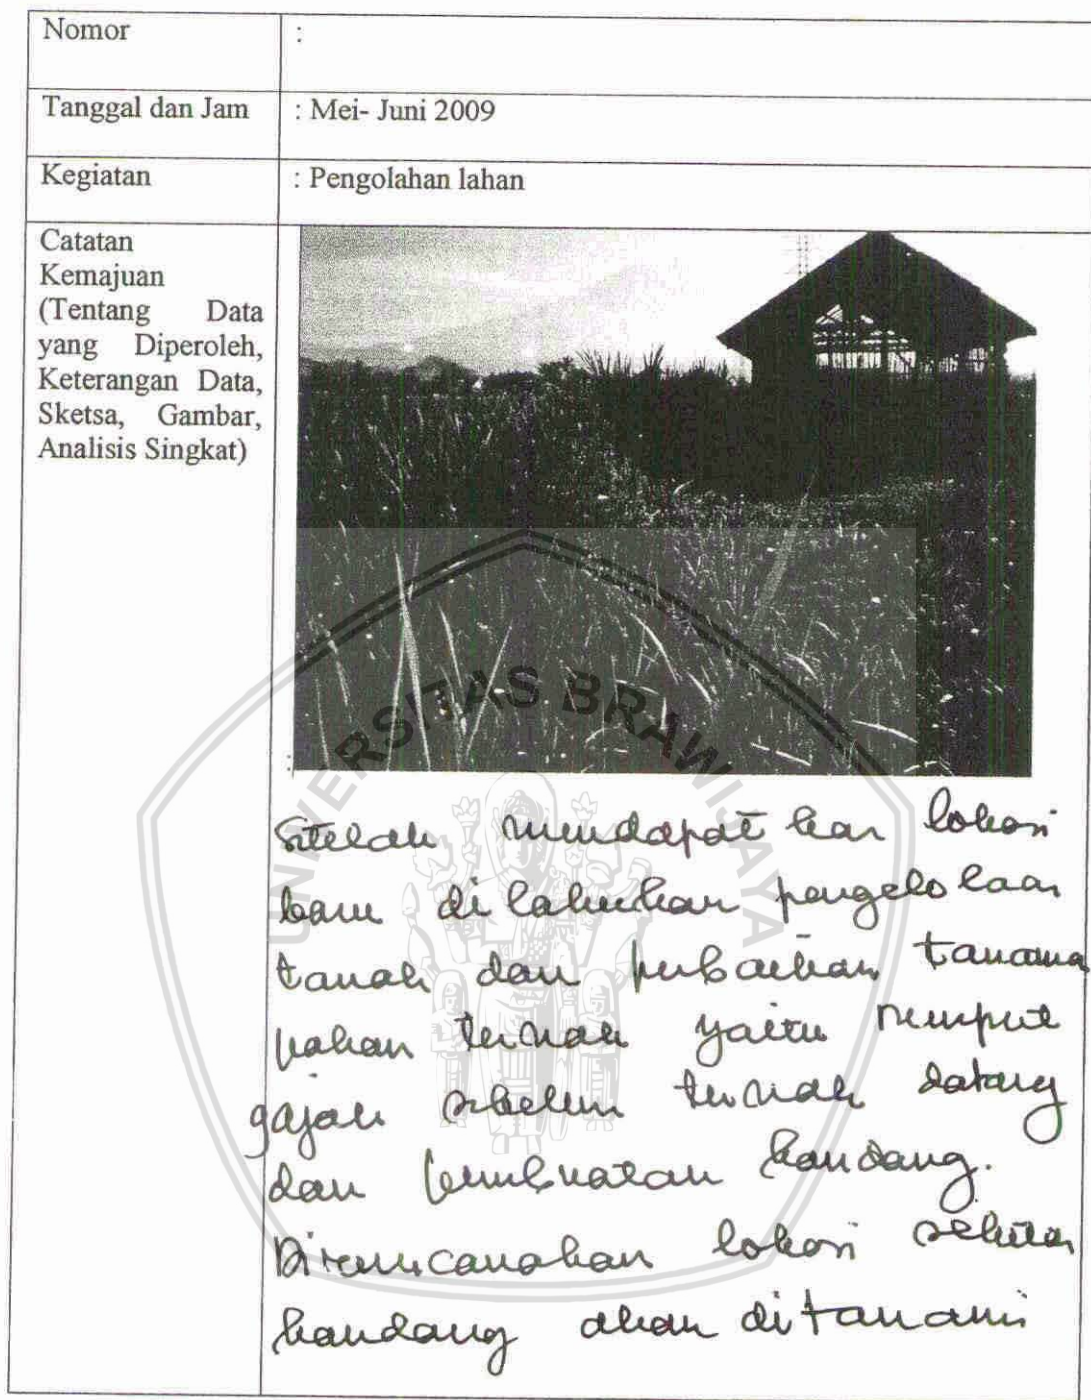 Nomor :
Tanggal dan Jam : Mei- Juni 2009
Kegiatan : Pengolahan lahan
Catatan
Kemajuan
(Tentang Data
yang Diperoleh,
Keterangan Data,
Sketsa, Gambar,
Analisis Singkat)
:
UNIVERSITAS BRAWIJAYA
Setelah mendapat kan lokasi
baru di lakukan pengelolaan
tanah dan perbaikan tanama
pakan ternak yaitu rumput
gajah sebelum ternak datang
dan pembuatan kandang.
Direncanakan lokasi sekitar
kandang akan ditanami